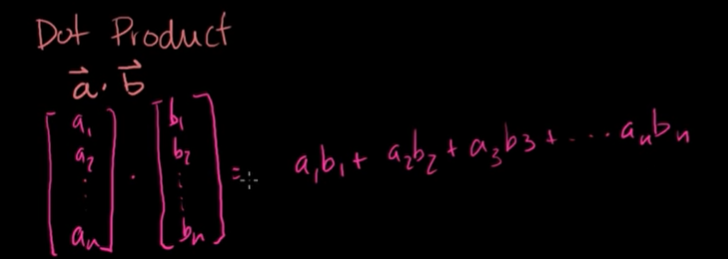 Dot Product
a⃗ · b⃗
[a₁ a₂ ⋮ aₙ] · [b₁ b₂ ⋮ bₙ] = a₁b₁ + a₂b₂ + a₃b₃ + ... aₙbₙ